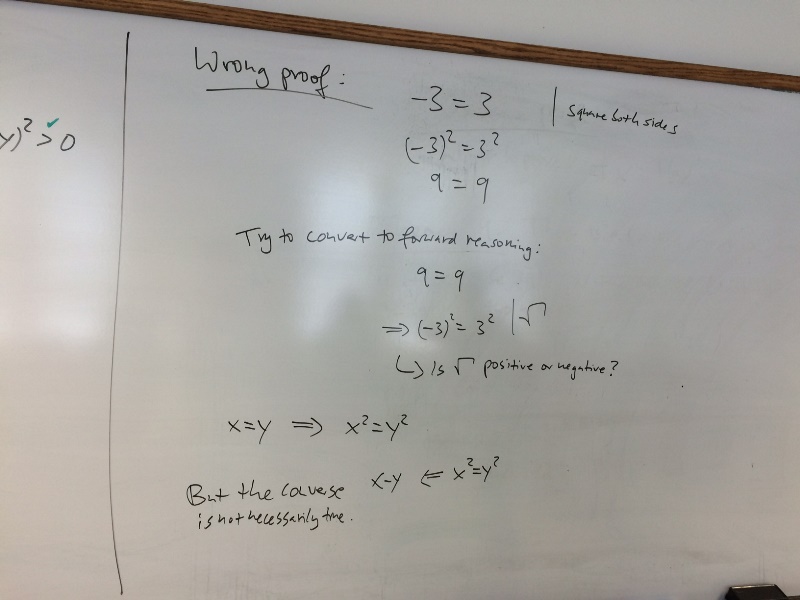 y)² > 0 ✓
Wrong proof:
-3 = 3 | square both sides
(-3)² = 3²
9 = 9
Try to convert to forward reasoning:
9 = 9
⇒ (-3)² = 3² | √
↳ is √ positive or negative?
x=y ⇒ x²=y²
But the converse x-y ⇐ x²=y²
is not necessarily true.